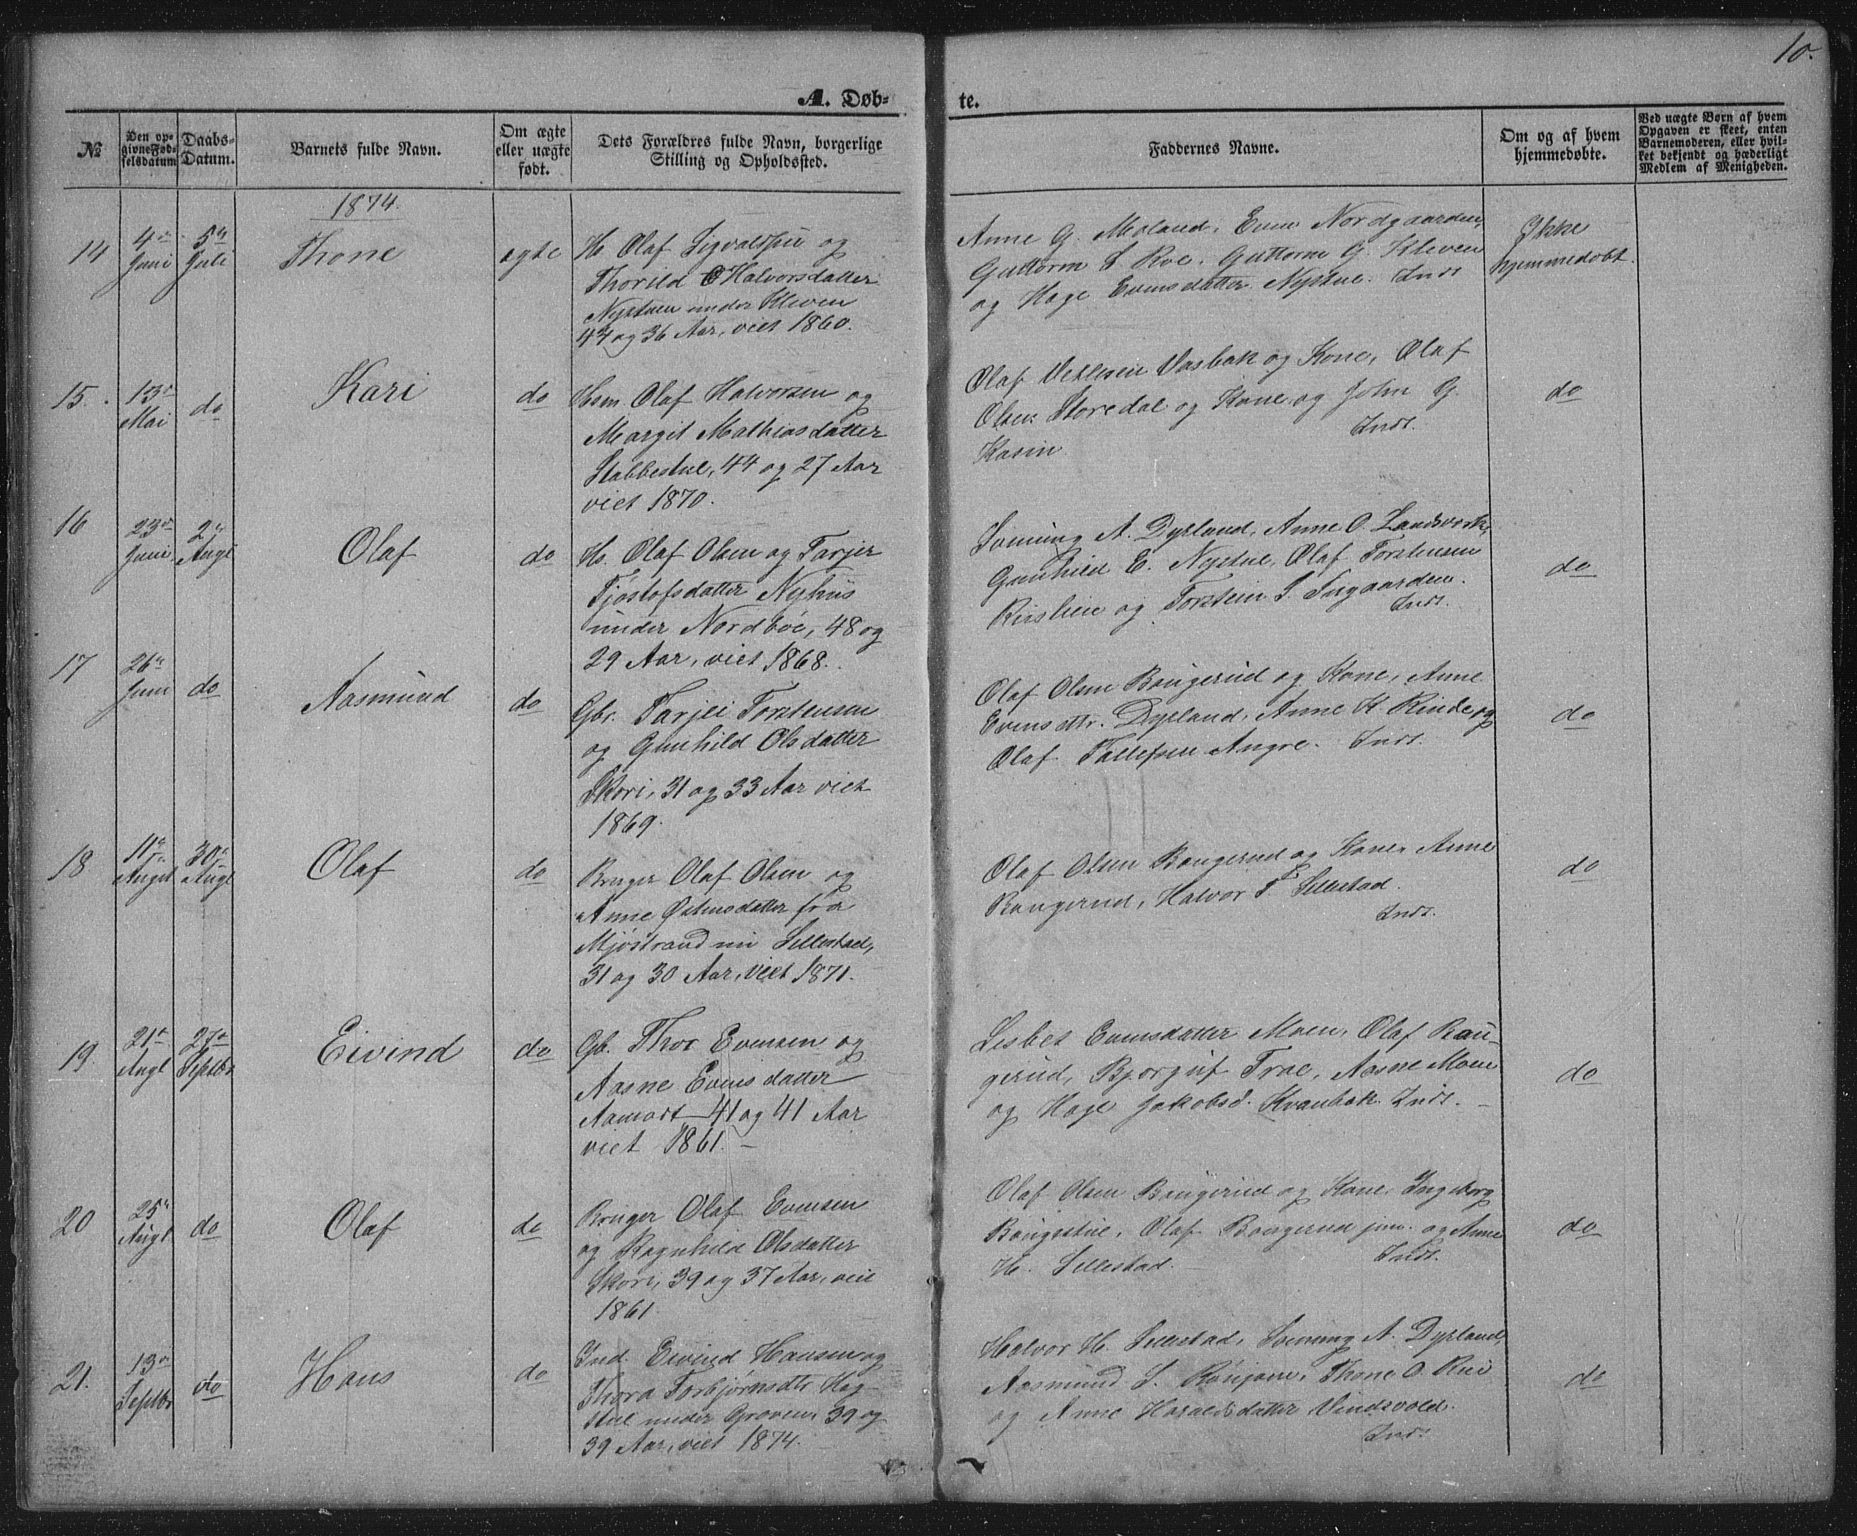 10.
A. Døb-
te.
№
Den op-
givne Fød-
selsdatum
Daabs-
Datum.
Barnets fulde Navn.
Om ægte
eller uægte
født.
Dets Forældres fulde Navn, borgerlige
Stilling og Opholdssted.
Faddernes Navne.
Om og af hvem
hjemmedøbte.
Ved uægte Børn af hvem
Opgaven er skeet, enten
Barnemoderen, eller hvil-
ket bekjendt og hæderligt
Medlem af Menigheden.
1874.
14
4de
Juni
5te
Juli
Thone
ægte
H. Olaf og
Thorild Halvorsdatter
Nystuen under Kleven
43 og 36 Aar, viet 1860.
Anne G. Moland, Even Nordgaarden,
Guttorm S. Roe, Guttorm G. Kleven
og Hage Evensdatter Nystue. Inds
Ikke
hjemmedøbt.
15.
13de
Mai
do
Kari
do
Hsm Olaf Halvorsen og
Margit Mathiasdatter
Stabbestue, 44 og 27 Aar
viet 1870.
Olaf Vetlesen Vasbak og Kone, Olaf
Olsen Storedal og Kone og John G.
Kasin Inds.
do
16
23de
Juni
2de
Augt
Olaf
do
Hs. Olaf Olsen og Tarjer
Tjøstofsdatter Nyhus
under Nordbøe, 48 og
29 Aar, viet 1868.
A. Dyrland, Anne O. Landsverk,
Gunhild E. Nystue, Olaf Torstensen
og Torstein S. Inds.
do
17
26de
Juni
do
Aasmund
do
Gbr. Tarjei Torstensen
og Gunhild Olsdatter
Skori, 31 og 33 Aar viet
1869.
Olaf Olsen Baugerud og Kone, Anne
Evensdtr. Dyrland, Anne K. Rinde og
Olaf Tallefsen Angre. Inds.
do
18
11te
Augst
30te
Augt
Olaf
do
Bruger Olaf Olsen og
Anne Østensdatter fra
Mjøstrand nu Sellestad,
31 og 30 Aar, viet 1871.
Olaf Olsen Baugerud og Kone, Anne
Baugerud, Halvor T. Sellestad.
Inds.
do
19.
21de
Augt
27de
Septbr
Eivind
do
Gb. Thor Evensen og
Aasne Evensdatter
Aamodt 41 og 41 Aar
viet 1861. –
Lisbet Evensdatter Moen, Olaf Bau-
gerud, Bjorguf Trae, Aasne Moen
og Hage Jakobsd. Kvanbæk. Inds. –
do
20
25de
Augt
do
Olaf
do
Bruger Olaf Evensen
og Ragnhild Olsdatter
Skori, 39 og 37 Aar, viet
1861.
Olaf Olsen Baugerud og Kone, Ingeborg
Baugestue, Olaf Baugerud jun. og Anne
H. Sellestad. Inds.
do
21.
13de
Septbr
do
Hans
do
Ind. Eivind Hansen og
Thora Torbjørnsdtr. Hag-
stue under Graven, 39 og
39 Aar, viet 1874.
Halvor H. Sellestad, A. Dyrland,
Aasmund S. Thone O. Rui
og Anne Haraldsdatter Vindsvold.
Inds.
do